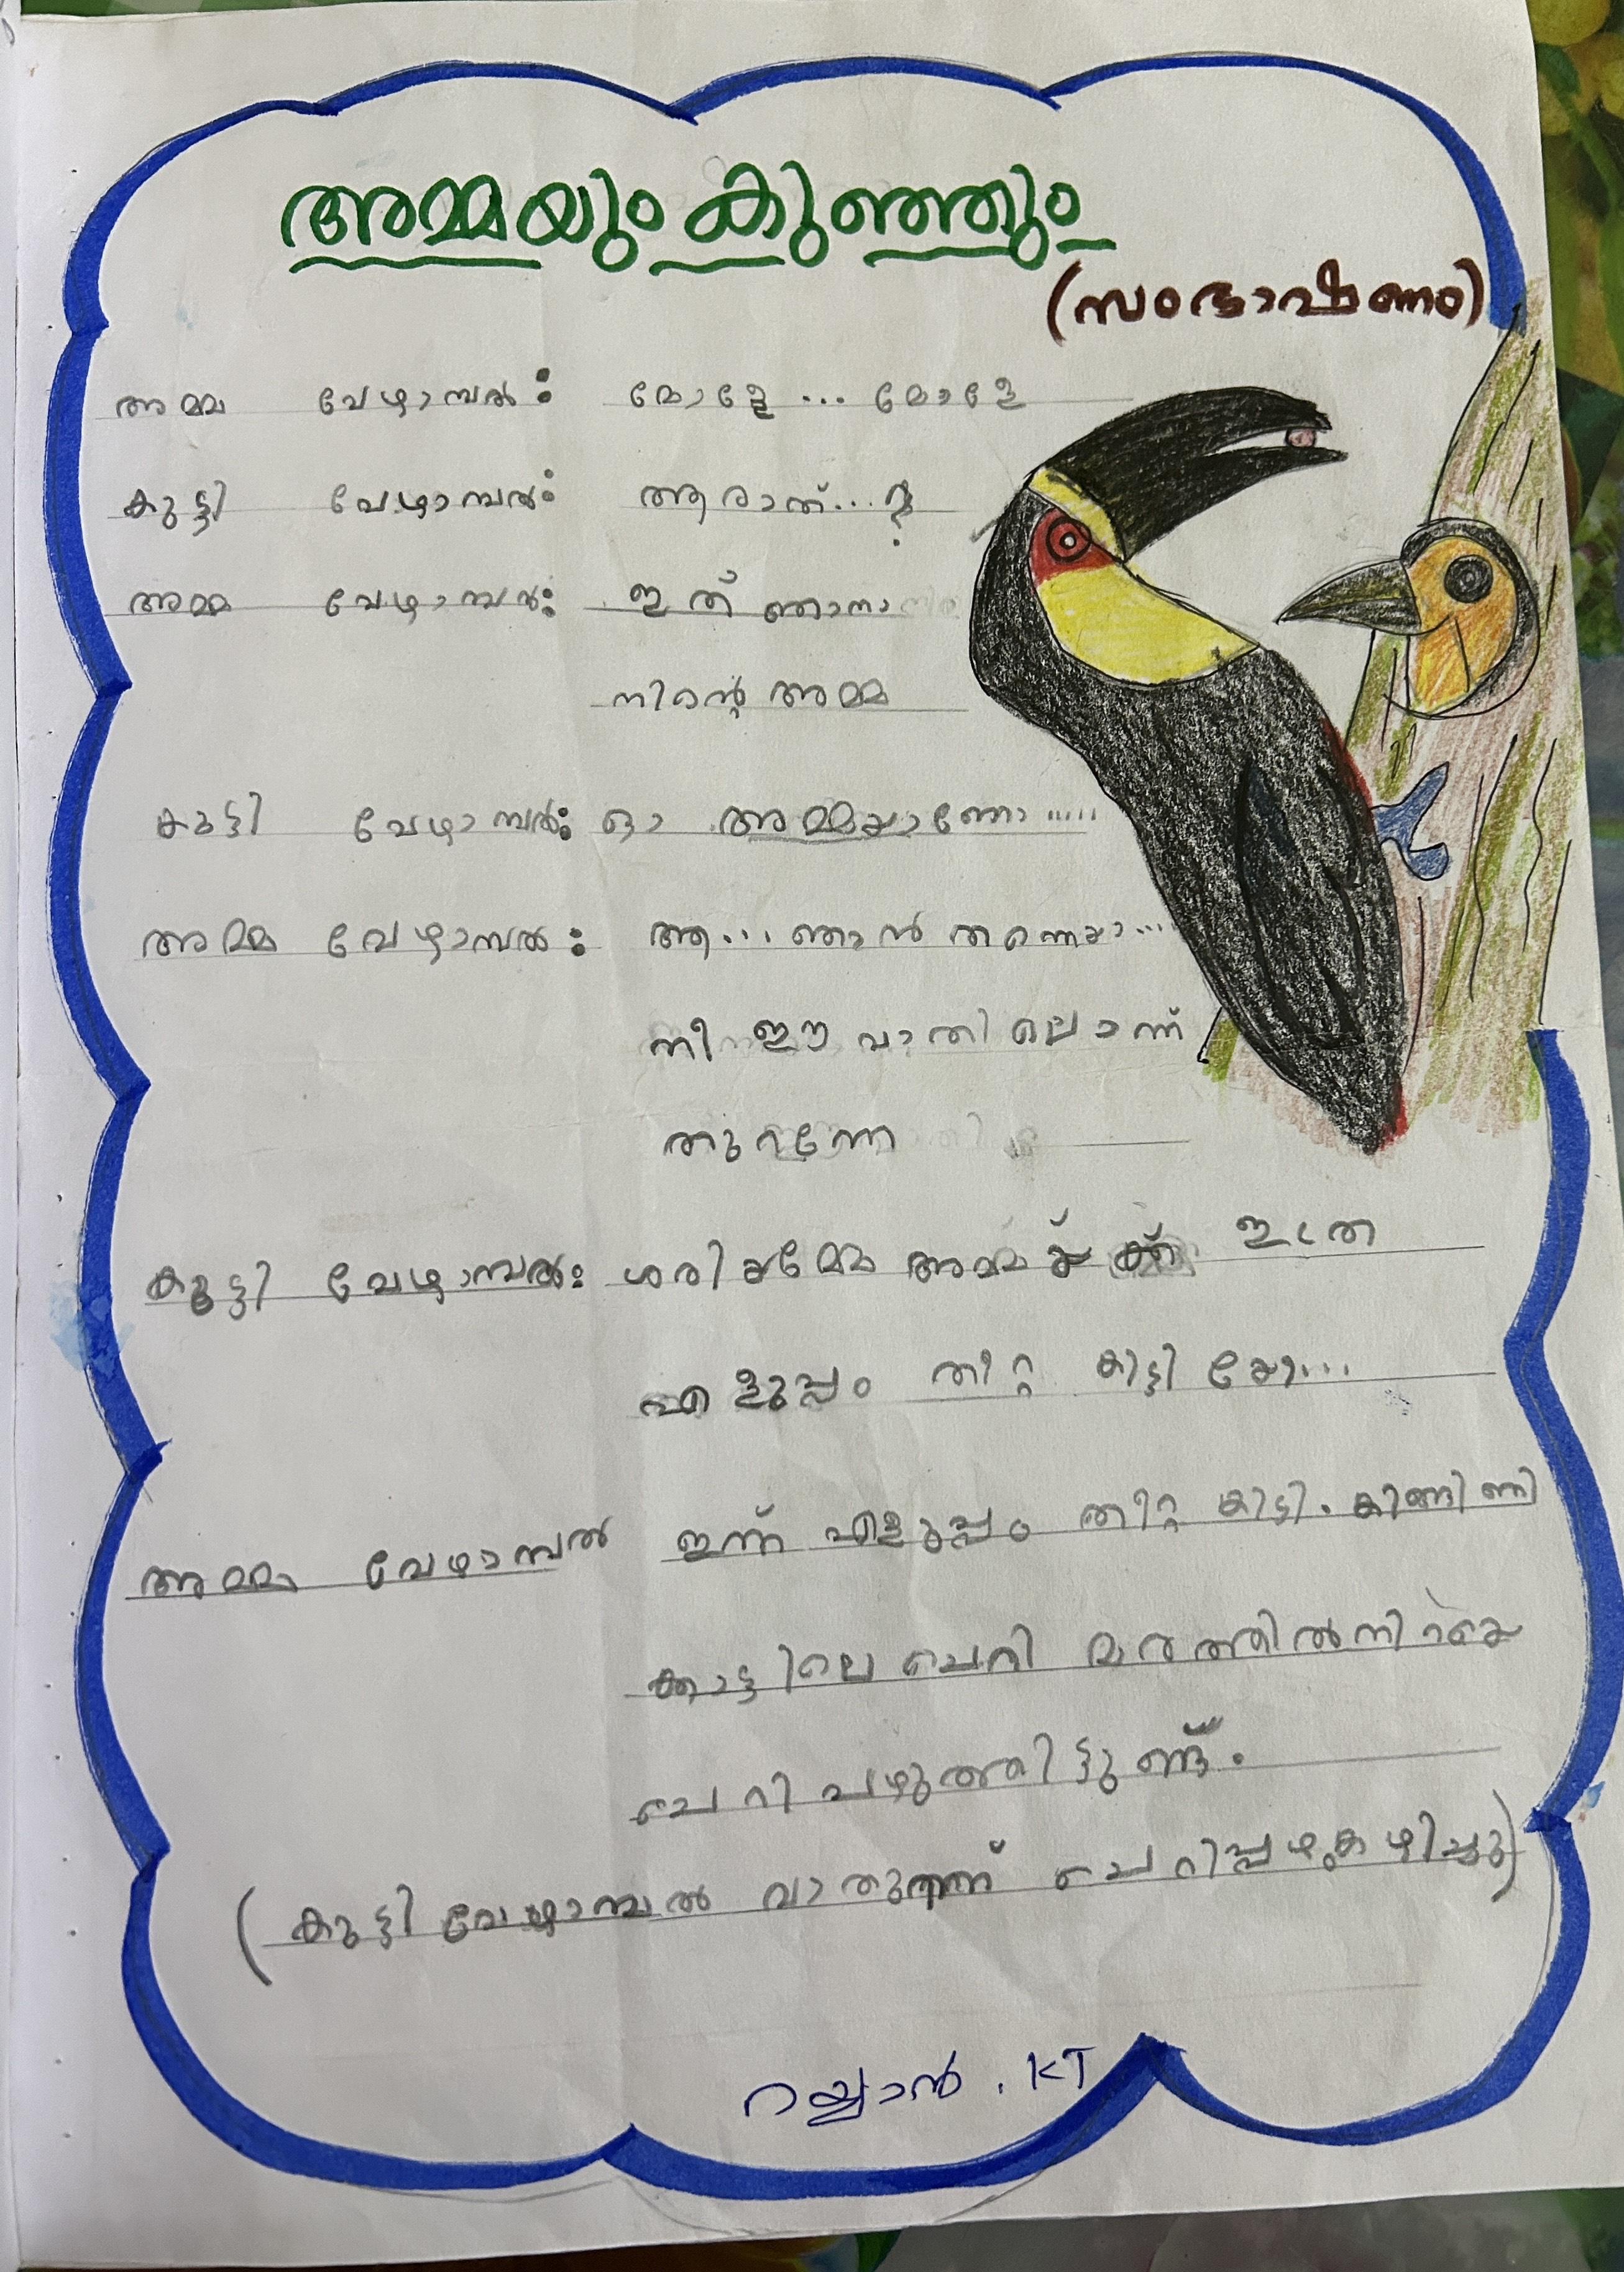 അമ്മയും കുഞ്ഞും
(സംഭാഷണം)
അമ്മ വേഴാമ്പൽ: മോളേ... മോളേ
കുട്ടി വേഴാമ്പൽ: ആരാത്...?
അമ്മ വേഴാമ്പൽ: ഇത് ഞാനാ
നിന്റെ അമ്മ
കുട്ടി വേഴാമ്പൽ: ഓ അമ്മയാണോ.....
അമ്മ വേഴാമ്പൽ: ആ... ഞാൻ തന്നെയാ...
നീ ഈ വാതിലൊന്ന്
തുറന്നേ
കുട്ടി വേഴാമ്പൽ: ശരിയമ്മേ അമ്മയ്ക്ക് ഇത്ര
എളുപ്പം തീറ്റ കിട്ടിയോ...
അമ്മ വേഴാമ്പൽ ഇന്ന് എളുപ്പം തീറ്റ കിട്ടി. കിങ്ങിണി
ക്കാട്ടിലെ ചെറി മരത്തിൽനിറയെ
ചെറി പഴുത്തിട്ടുണ്ട്.
(കുട്ടി വേഴാമ്പൽ വാതുറന്ന് ചെറിപ്പഴംകഴിച്ചു)
റയ്യാൻ. KT